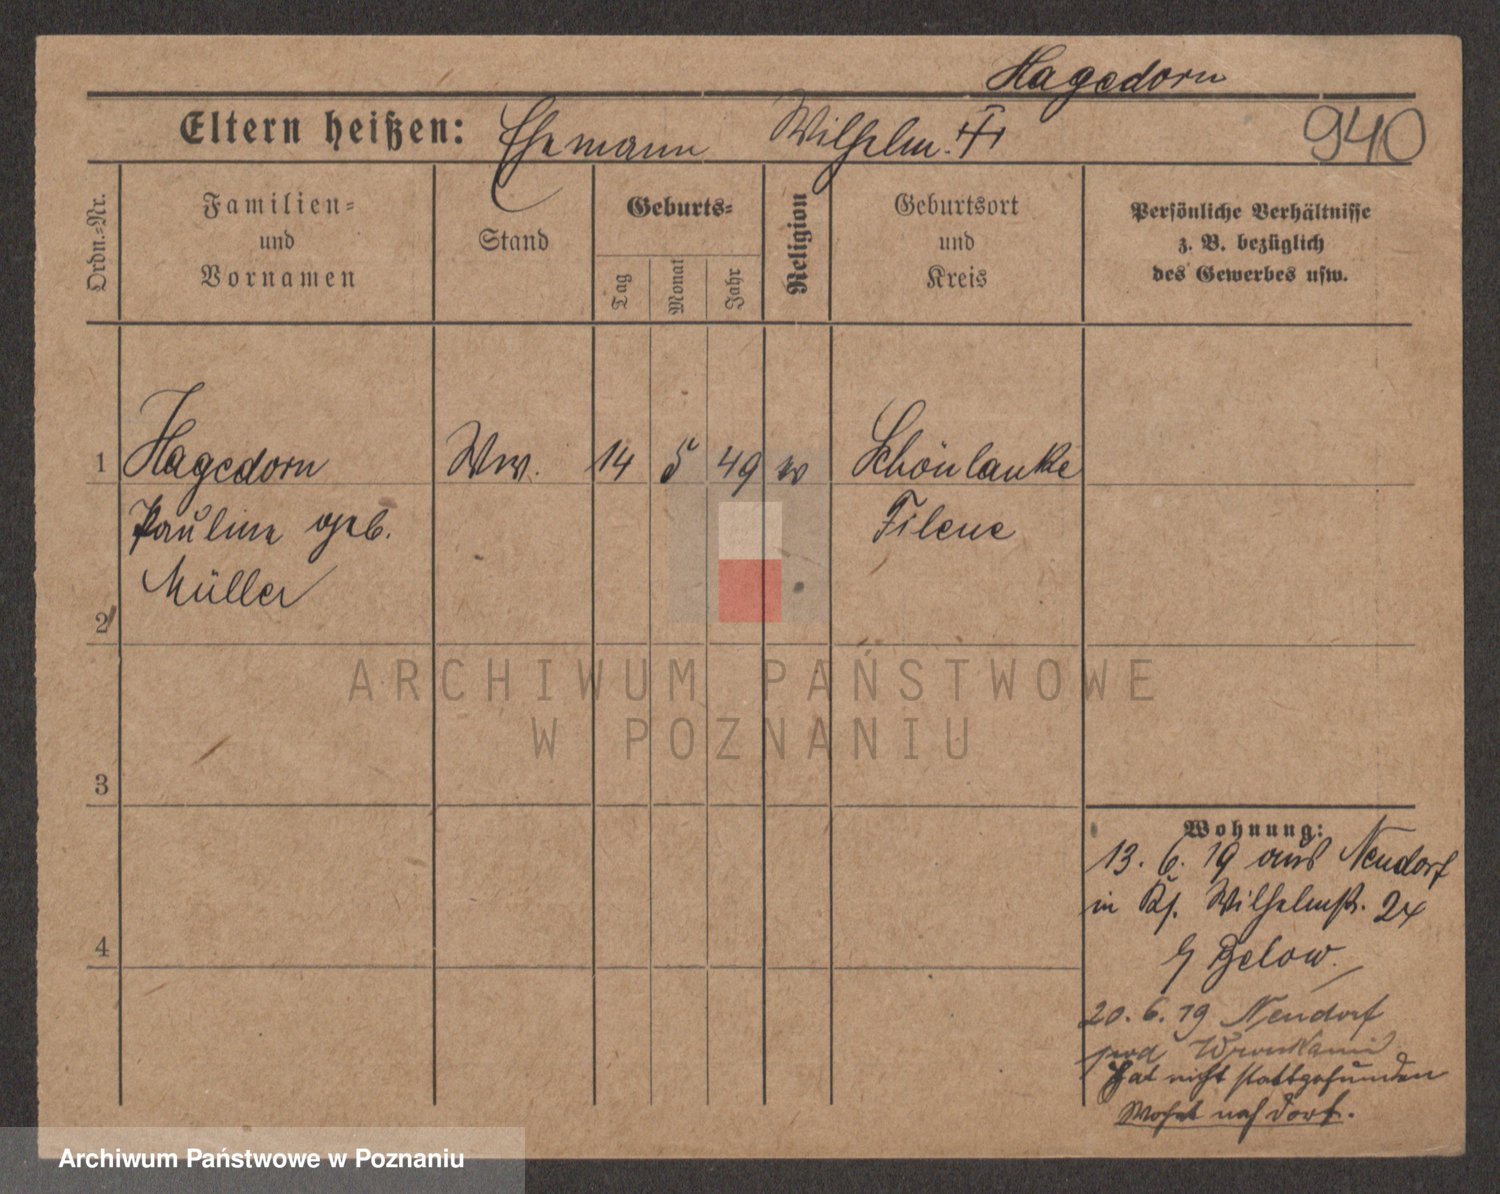 Hagedorn
Eltern heißen: Ehemann Wilhelm. ++
940
Ordn.-Nr.
Familien-
und
Vornamen
Stand
Geburts-
Tag
Monat
Jahr
Religion
Geburtsort
und
Kreis
Persönliche Verhältnisse
z. B. bezüglich
des Gewerbes usw.
1 Hagedorn Ww. 14 5 49 Schönlanke
Pauline geb. Filene
Müller
2
ARCHIWUM PAŃSTWOWE
W POZNANIU
3
Wohnung:
13. 6. 19 aus Neudorf
in Wilhelmstr. 24
Below.
4
20. 6. 19 Neudorf
pod Wronkami
hat nicht stattgefunden
Wohnt noch dort.
Archiwum Państwowe w Poznaniu